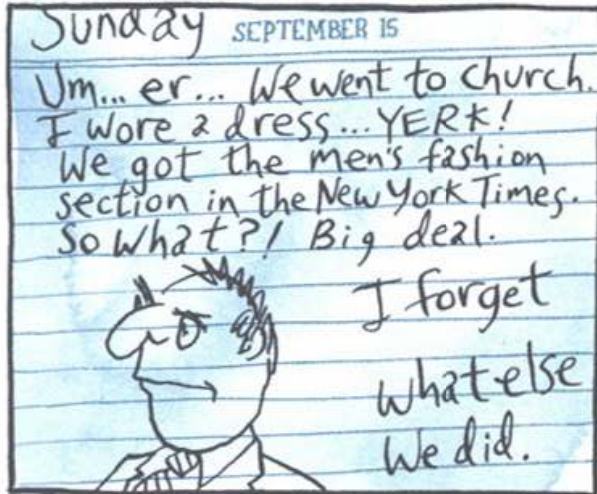 Sunday SEPTEMBER 15
Um... er... We went to church.
I wore a dress... YERK!
We got the men's fashion
section in the New York Times.
So what?! Big deal.
I forget
what else
we did.